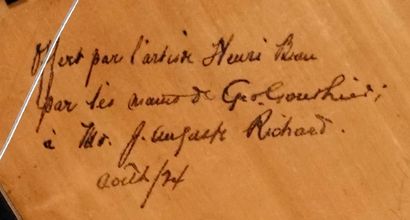 Offert par l'artiste Henri Beau
par les mains de Geo. Gonthier;
à Mr. J. Auguste Richard.
août/24